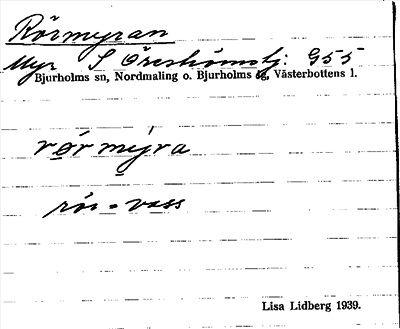 Rörmyran
Myr S Öreströmsbj: G55
Bjurholms sn, Nordmaling o. Bjurholms tg, Västerbottens l.
rör mýra
rör = vass
Lisa Lidberg 1939.